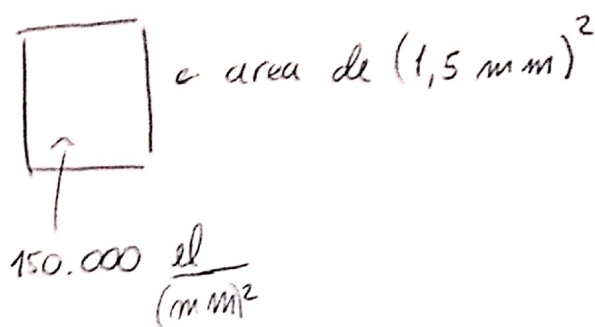 c area de (1,5 mm)²
150.000 el/(mm)²